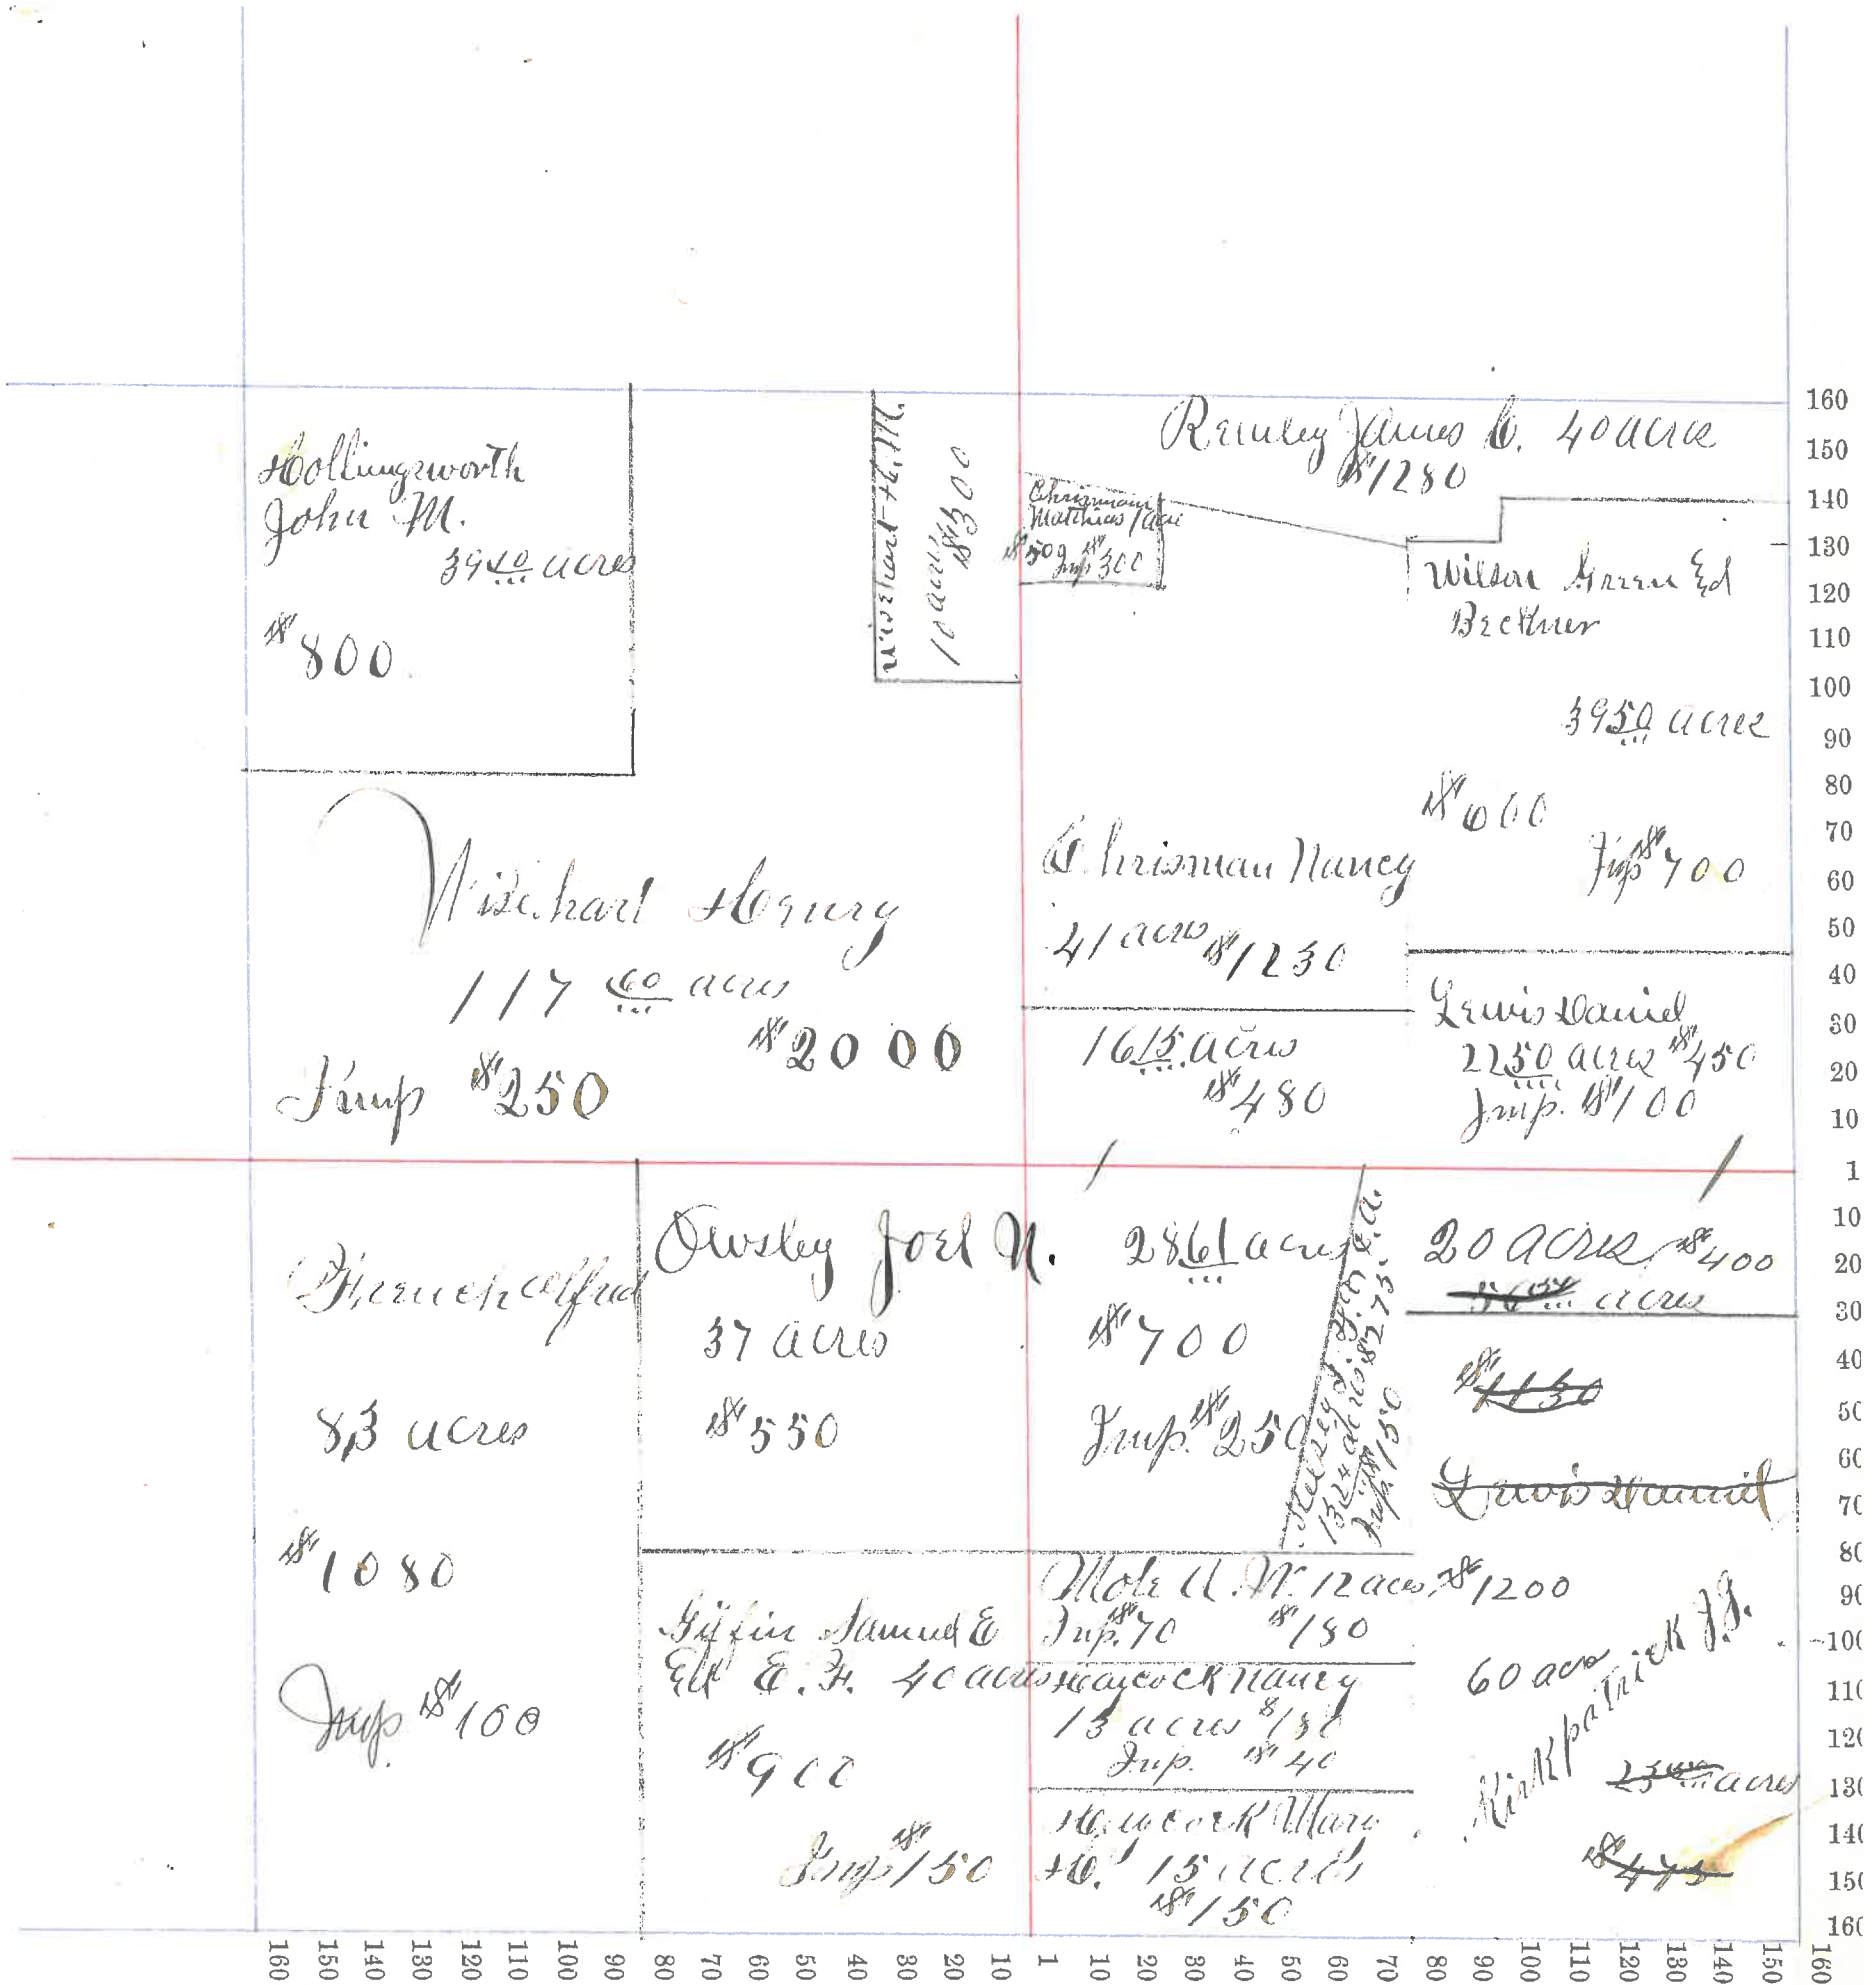 Hollingsworth
John M.
39 40/... acres
$800
Wisehart H. M.
10 acres
$300
Remley James C. 40 acres
$1280
Chrisman
Matthias 1 acre
$50
Imp $300
Wilson Green Ed
Beckner
39 50/... acres
$600
Imp $700
Wisehart Henry
117 60/... acres
$2000
Imp $250
Chrisman Nancy
41 acres $1230
16 15/... acres
$480
Lewis Daniel
22 50/... acres $450
Imp. $100
French Alfred
83 acres
$1080
Imp $100
Owsley Joel N.
37 acres
$550
28 61/... acres
$700
Imp. $250
13 24 acres $275.
Imp. $150
20 acres $400
acres
$1130
Lewis Daniel
Samuel E
E. F. 40 acres
$900
Imp $150
Mote A. W. 12 acres
Imp. $70 $180
Haycock Nancy
13 acres $130
Imp. $40
Haycock Mary
H. 15 acres
$150
$1200
60 acres
Kirkpatrick J. J.
acres
$475
160
150
140
130
120
110
100
90
80
70
60
50
40
30
20
10
1
10
20
30
40
50
60
70
80
90
100
110
120
130
140
150
160
160 150 140 130 120 110 100 90 80 70 60 50 40 30 20 10 1 10 20 30 40 50 60 70 80 90 100 110 120 130 140 150 160